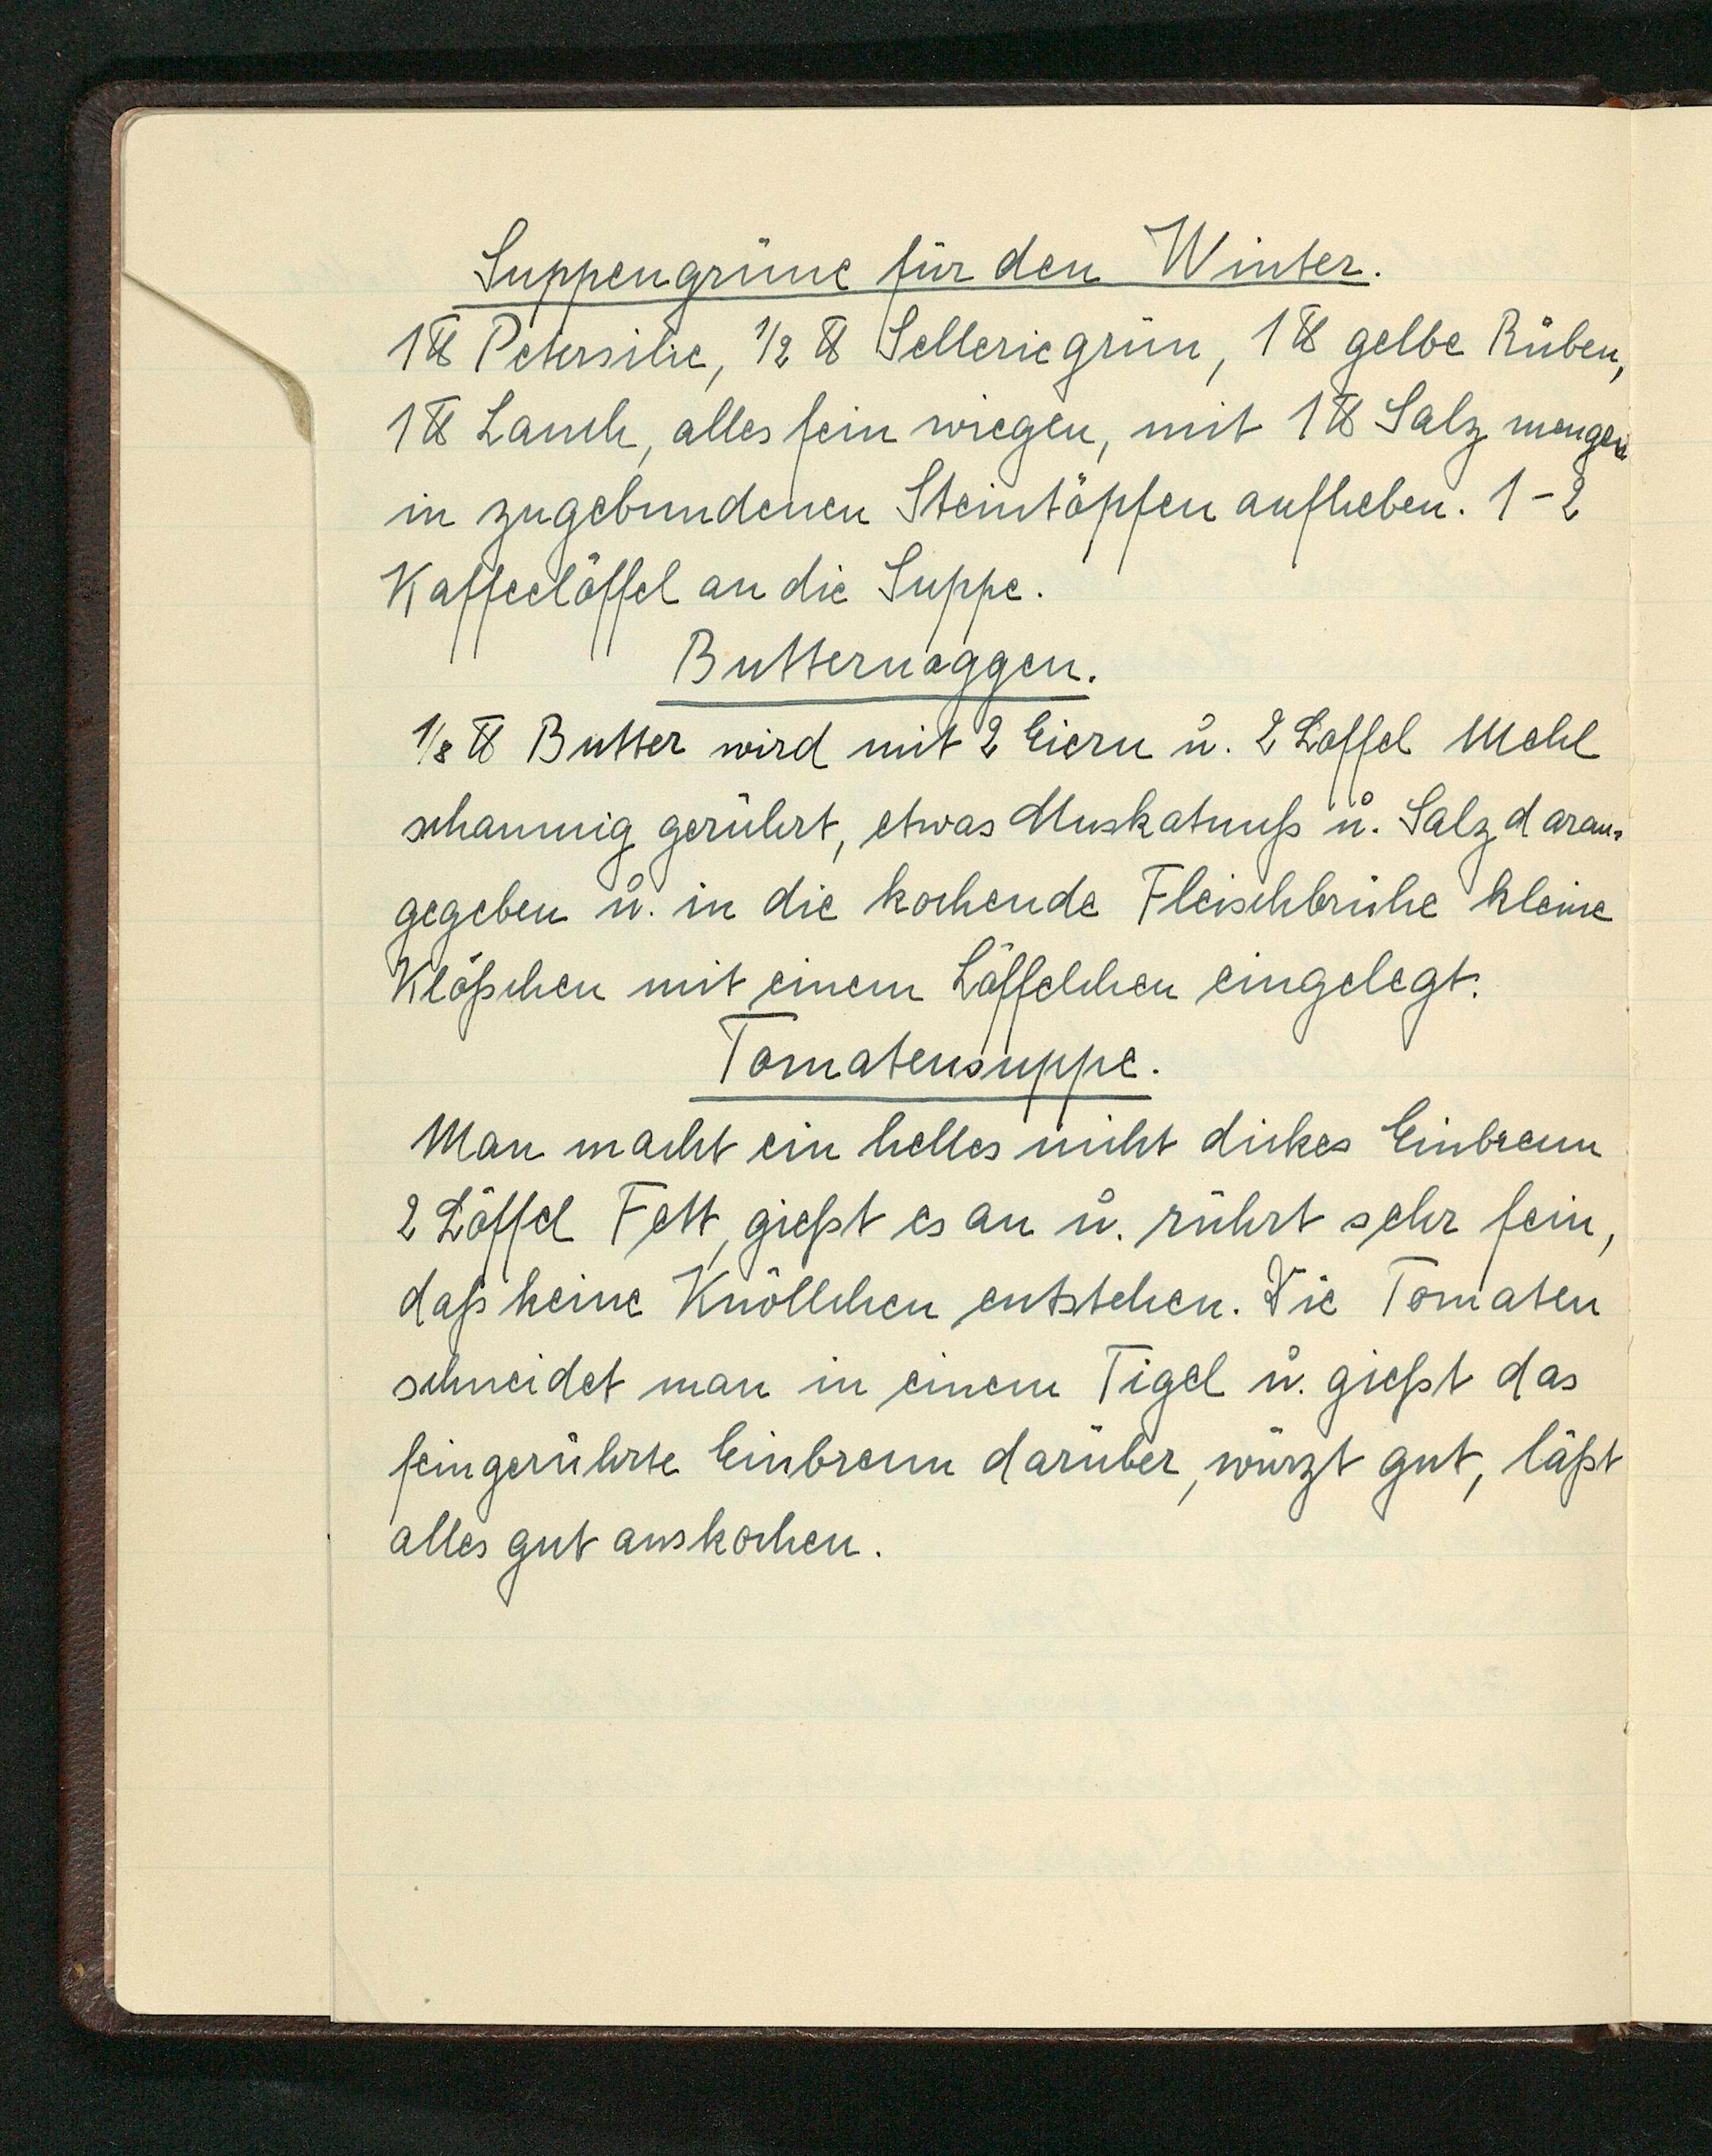 Suppengrüne für den Winter.
1 ℔ Petersilie, 1/2 ℔ Selleriegrün, 1 ℔ gelbe Rüben,
1 ℔ Lauch, alles fein wiegen, mit 1 ℔ Salz mengen
in zugebundenen Steintöpfen aufheben. 1-2
Kaffeelöffel an die Suppe.
Butternoggen.
1/8 ℔ Butter wird mit 2 Eiern u. 2 Löffel Mehl
schaumig gerührt, etwas Muskatnuß u. Salz daran
gegeben u. in die kochende Fleischbrühe kleine
Klößchen mit einem Löffelchen eingelegt.
Tomatensuppe.
Man macht ein helles nicht dickes Einbrenn
2 Löffel Fett, gießt es an u. rührt sehr fein,
daß keine Knöllchen entstehen. Die Tomaten
schneidet man in einem Tigel u. gießt das
feingerührte Einbrenn darüber, würzt gut, läßt
alles gut auskochen.